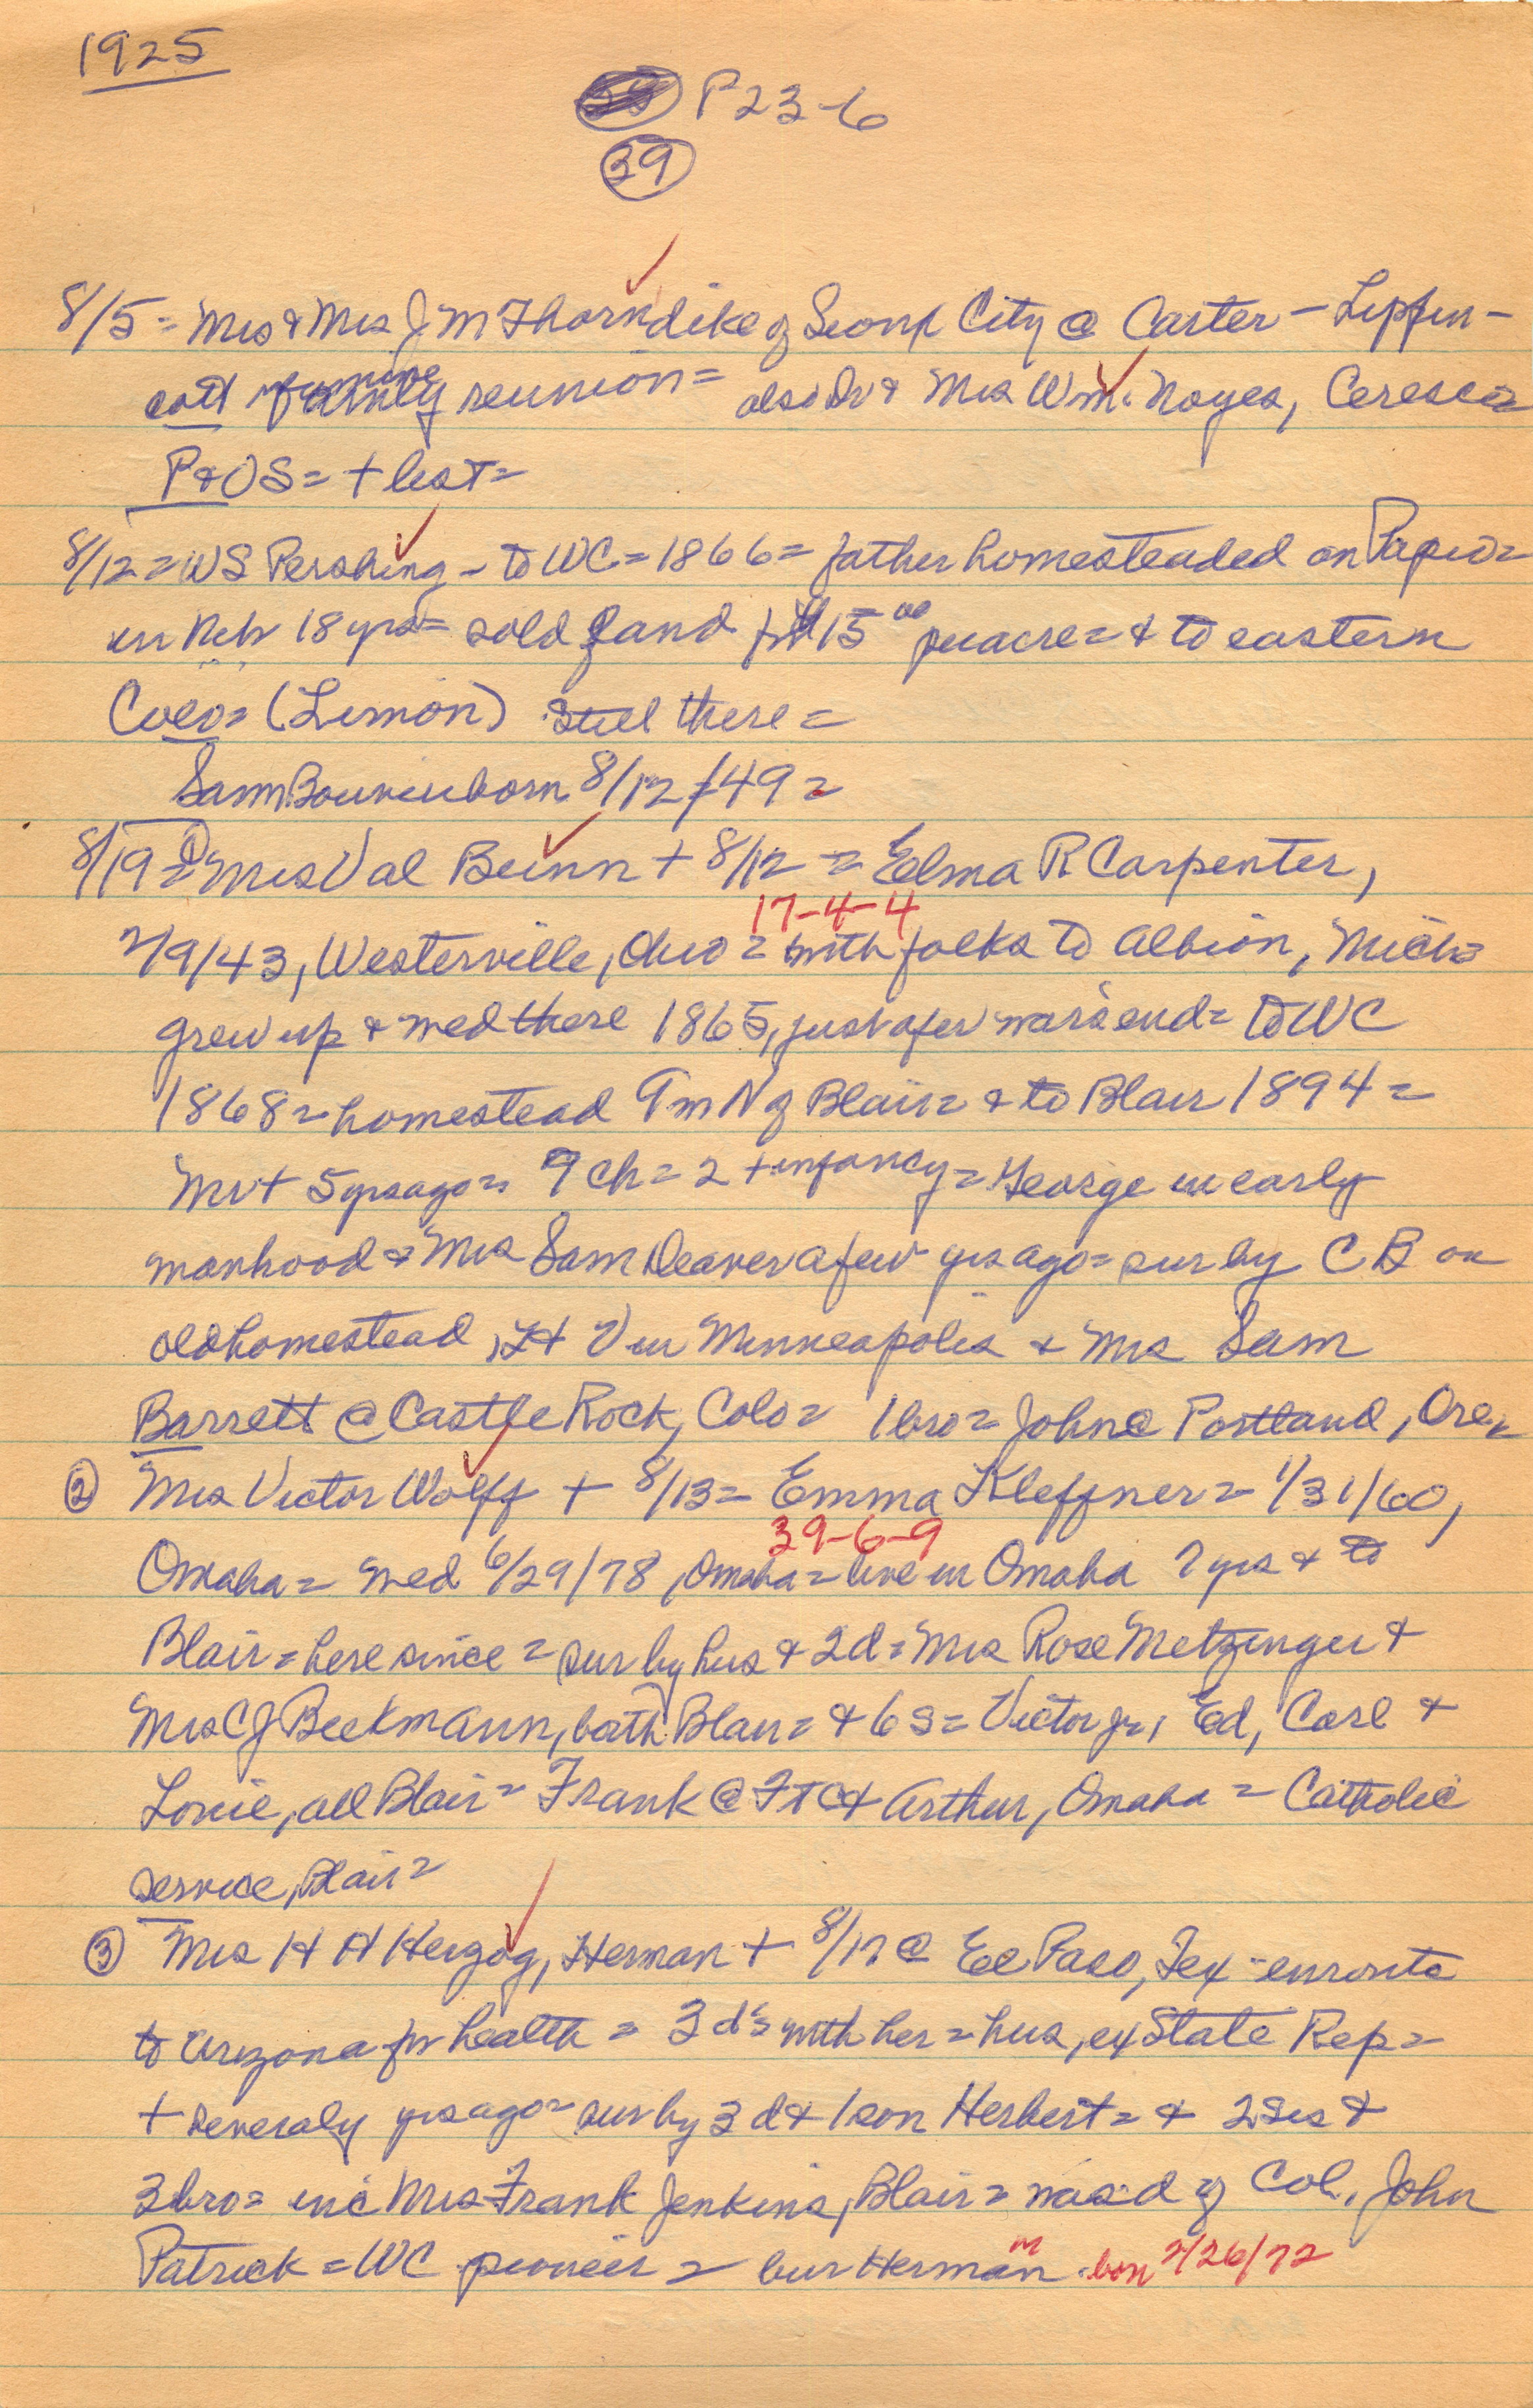 1925
P23-6
39
8/5 = Mrs & Mrs J M Thorndike of Sioux City @ Carter - Lippin-
cott family reunion = also Dr & Mrs Wm. Noyes, Ceresco
P & OS = + list =
8/12 = WS Pershing - to WC = 1866 = father homesteaded on Papio =
in Neb 18 yrs = sold land for $15 00 per acre = & to eastern
Colo = (Limon) still there =
Sam born 8/12/49 =
8/19 = ① Mrs Val Bunn + 8/12 = Elma R Carpenter,
17-4-4
2/9/43, Westerville, Ohio = with folks to Albion, Mich =
grew up & med there 1865, just after war's end = to WC
1868 = homestead 9 m N of Blair = & to Blair 1894 =
Mr + 5 yrs ago = 7 ch = 2 + infancy = George in early
manhood & Mrs Sam Deaver a few yrs ago = sur by C B on
old homestead, H V in Minneapolis & Mrs Sam
Barrett @ Castle Rock, Colo = 1 bro = John @ Portland, Ore,
② Mrs Victor Wolff + 8/13 = Emma Kleffner = 1/31/60,
39-6-9
Omaha = med 6/29/78, Omaha = live in Omaha 7 yrs & to
Blair = here since = sur by hus & 2 d = Mrs Rose Metzinger &
Mrs C J Beckmann, both Blair = & 6 s = Victor jr, Ed, Carl &
Louie, all Blair = Frank @ Ft C & Arthur, Omaha = Catholic
service, Blair =
③ Mrs H H Herzog, Herman + 8/17 @ El Paso, Tex - enroute
to Arizona for health = 3 d's with her = hus, ex State Rep =
+ severaly yrs ago = sur by 3 d & 1 son Herbert = & 2 sis &
3 bro = inc Mrs Frank Jenkins, Blair = was d of Col. John
Patrick = WC pioneer = bur Herman m born 2/26/72